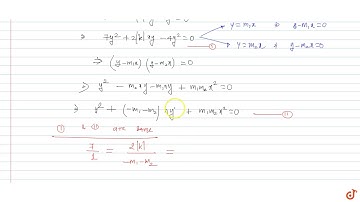 ⇒ 7y² + 2|k|xy - 4x² = 0 ①
y = m₁x ⇒ y-m₁x = 0
y = m₂x ⇒ y-m₂x = 0
⇒ (y-m₁x) (y-m₂x) = 0
⇒ y² - m₂xy - m₁xy + m₁m₂x² = 0
⇒ y² + (-m₁-m₂) xy + m₁m₂x² = 0 ②
① & ② are same
7/1 = 2|k|/-m₁-m₂ =